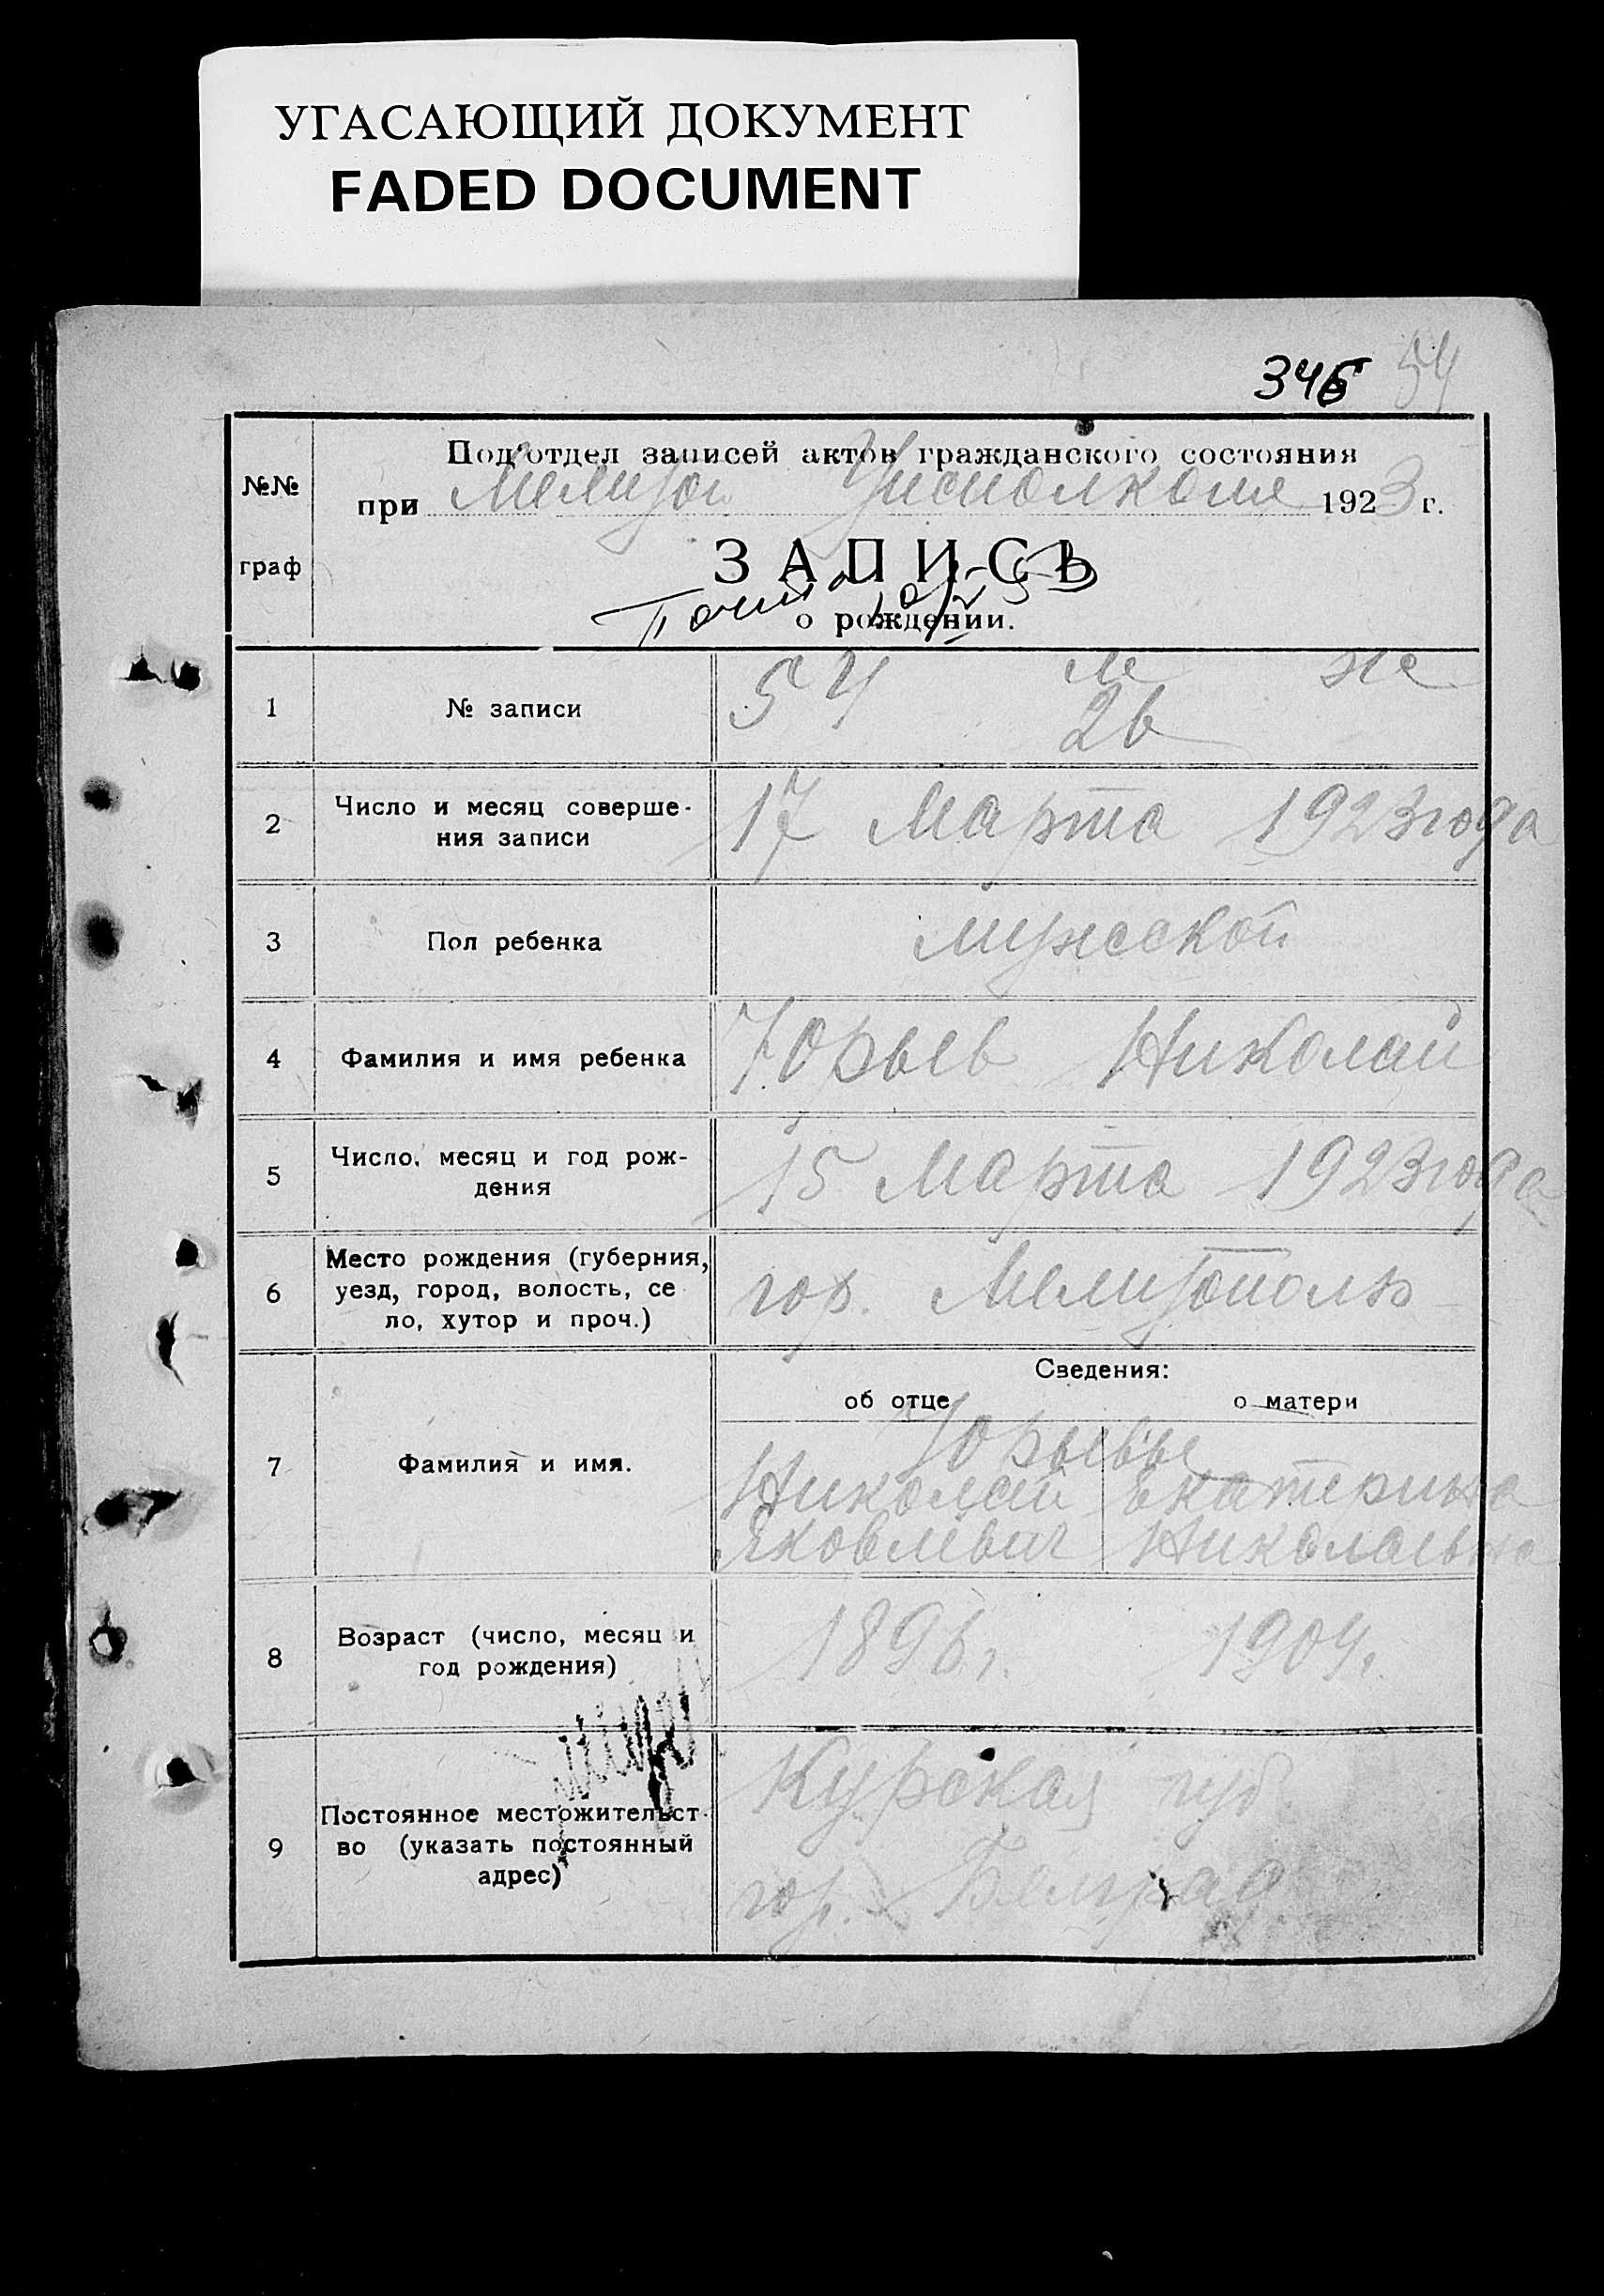 УГАСАЮЩИЙ ДОКУМЕНТ
FADED DOCUMENT
345 54
№№
граф
Подотдел записей актов гражданского состояния
при Мелитоп. Уисполкоме 1923 г.
ЗАПИСЬ
о рождении.
1 № записи 54 м ж
26
2 Число и месяц соверше-
ния записи
17 Марта 1923 года
3 Пол ребенка мужской
4 Фамилия и имя ребенка Юрьев Николай
5 Число, месяц и год рож-
дения
15 Марта 1923 года
6 Место рождения (губерния,
уезд, город, волость, се
ло, хутор и проч.)
гор. Мелитополь
Сведения:
об отце о матери
7 Фамилия и имя.
Юрьевы
Николай Екатерина
Яковлевич Николаевна
8 Возраст (число, месяц и
год рождения)
1896 г. 1904 г.
9 Постоянное местожительст-
во (указать постоянный
адрес)
Курская губ.
гор. Белград